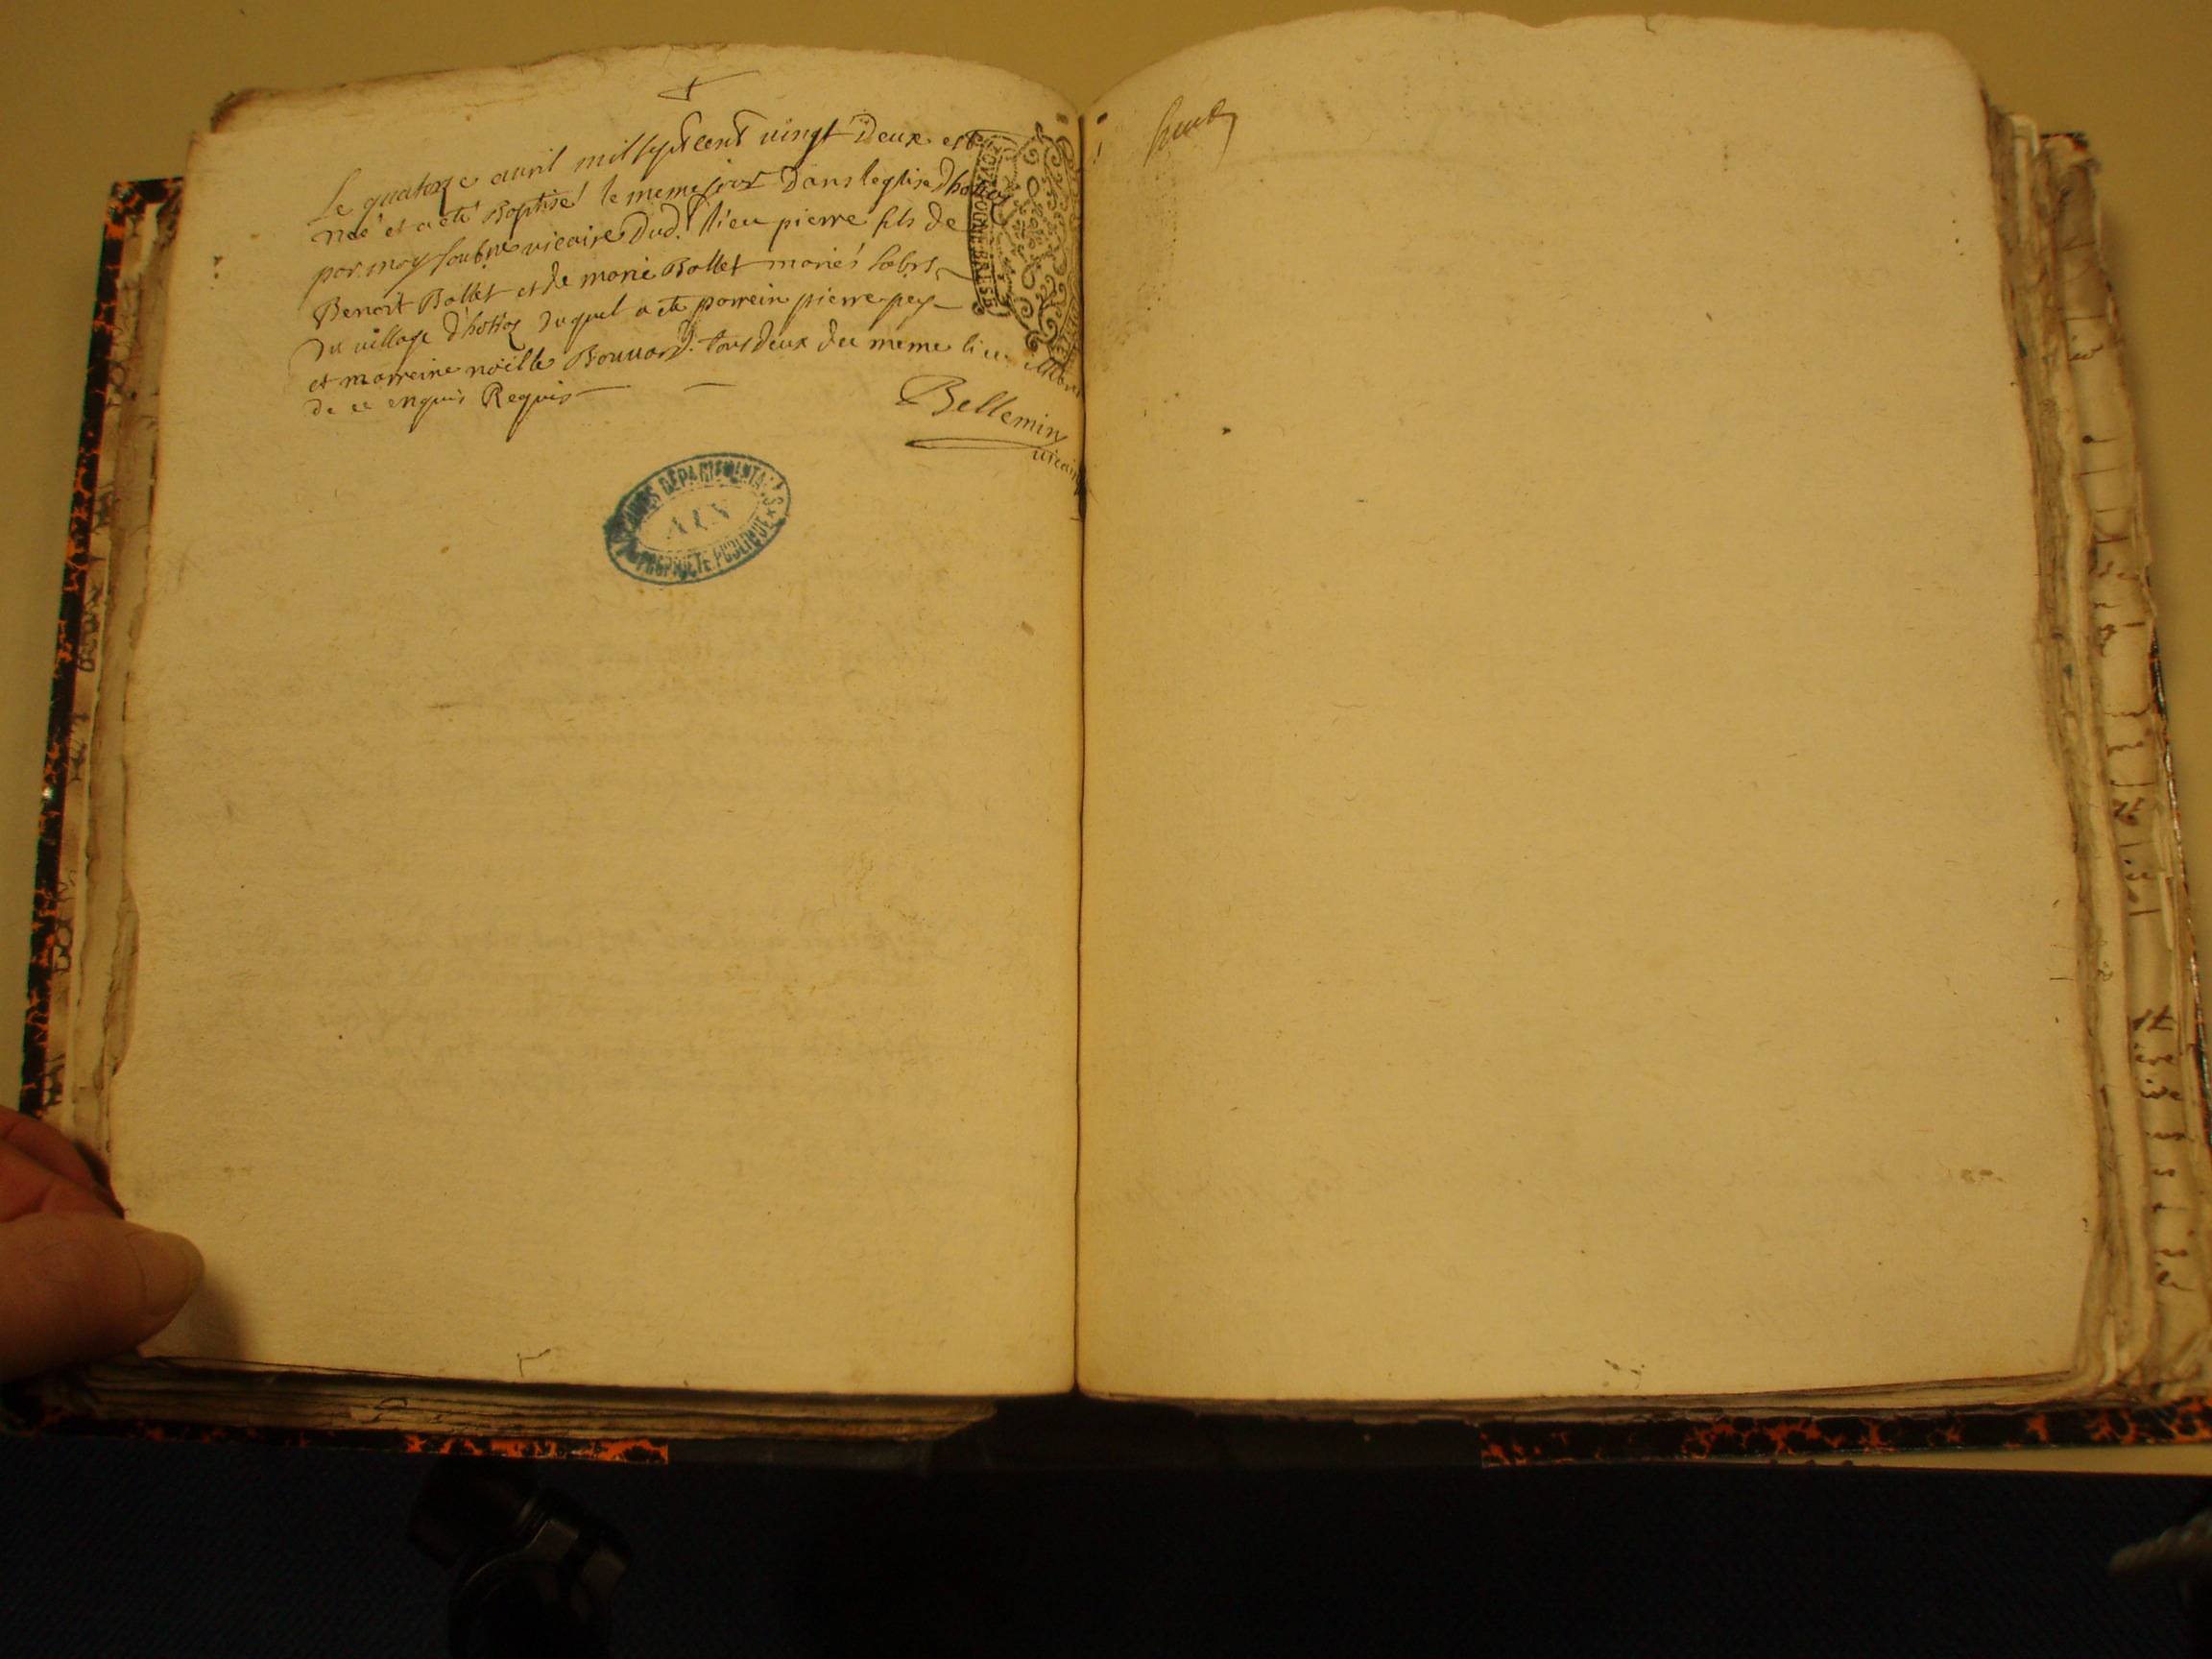 Le quatorze auril mil sept cent vingt deux est
neé et a eté Baptisé le meme jour dans leglise dhottoz
par moy soubné vicaire dud. lieu pierre fils de
Benoit Ballet et de marie Ballet mariés labrs
du village d'hottoz duquel a ete parrein pierre pey
et marreine noëlle Bouuard tous deux du meme lieu illitres
de ce enquis Requis
Bellemin
vicaire
ARCHIVES DEPARTEMENTALES
AIN
PROPRIETE PUBLIQUE